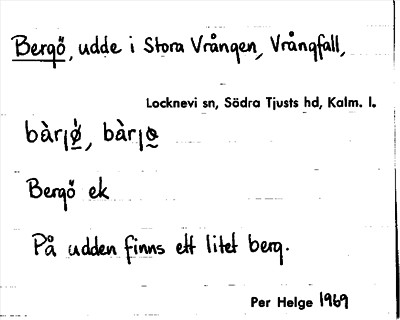 Bergö, udde i Stora Vrången, Vrångfall,
Locknevi sn, Södra Tjusts hd, Kalm. l.
Bergö ek
På udden finns ett litet berg.
Per Helge 1969